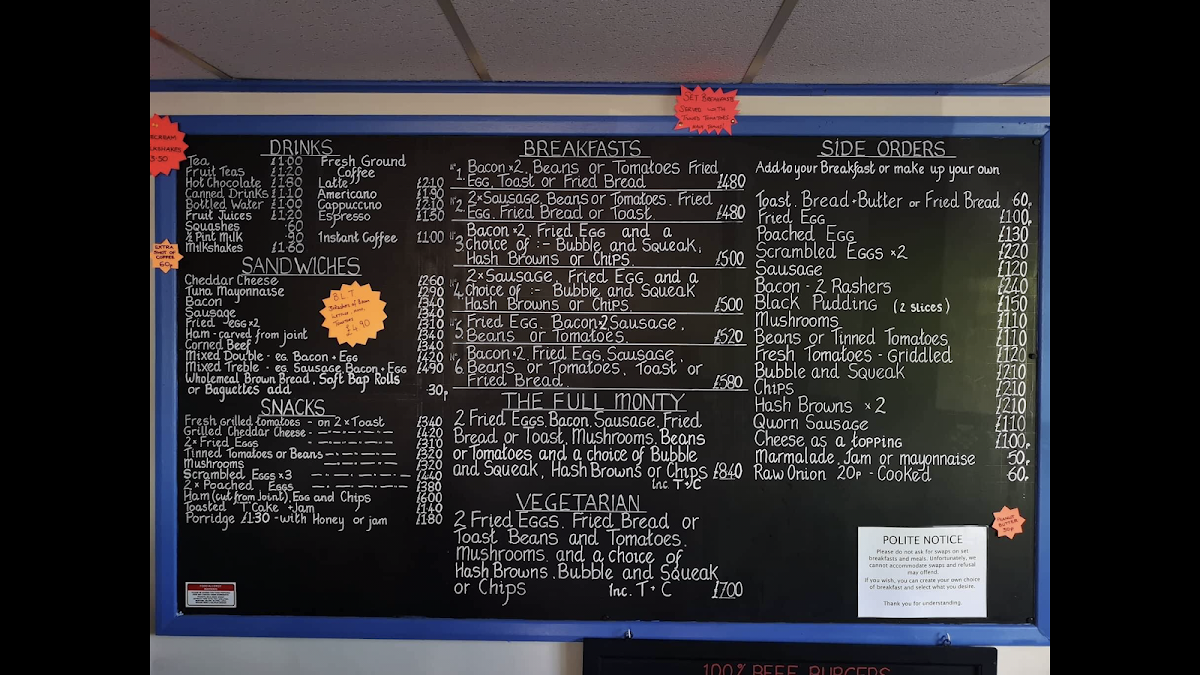 SET BREAKFASTS
SERVED WITH
DRINKS
Tea £1·00
Fruit Teas £1·20
Hot Chocolate £1·80
Canned Drinks £1·10
Bottled Water £1·00
Fruit Juices £1·20
Squashes ·60
½ Pint Milk ·90
Milkshakes
Fresh Ground
Coffee
Latte £2·10
Americano £1·90
Cappuccino £2·10
Espresso £1·50
Instant Coffee £1·00
EXTRA
SHOT OF
COFFEE
60p
SANDWICHES
Cheddar Cheese £2.60
Tuna Mayonnaise £2.90
Bacon £3.40
Sausage £3.40
Fried egg×2 £3.10
Ham - carved from joint £3.40
Corned Beef £3.40
Mixed Double - eg. Bacon + Egg £4.20
Mixed Treble - eg. Sausage, Bacon + Egg £4.90
Wholemeal Brown Bread, Soft Bap Rolls
or Baguettes add 30p
B.L.T
£4.90
SNACKS
Fresh grilled tomatoes - on 2×Toast £3.40
Grilled Cheddar Cheese £4.20
2× Fried Eggs £3.10
Tinned Tomatoes or Beans £3.20
Mushrooms £3.20
Scrambled Eggs ×3 £4.40
2× Poached Eggs £3.80
Ham (cut from joint), Egg and Chips £6.00
Toasted 'T' Cake + Jam £1.40
Porridge £1.30 - with Honey or jam £1.80
BREAKFASTS
1. Bacon×2, Beans or Tomatoes Fried
Egg, Toast or Fried Bread £4.80
2. 2×Sausage, Beans or Tomatoes, Fried
Egg, Fried Bread or Toast. £4.80
3. Bacon×2, Fried Egg and a
Choice of :- Bubble and Squeak,
Hash Browns or Chips. £5.00
4. 2×Sausage, Fried Egg and a
Choice of :- Bubble and Squeak
Hash Browns or Chips. £5.00
5. Fried Egg, Bacon×2, Sausage,
Beans or Tomatoes. £5.20
6. Bacon×2, Fried Egg, Sausage,
Beans or Tomatoes, Toast or
Fried Bread. £5.80
THE FULL MONTY
2 Fried Eggs, Bacon, Sausage, Fried
Bread or Toast, Mushrooms, Beans
or Tomatoes and a choice of Bubble
and Squeak, Hash Browns or Chips £8.40
Inc. T+C
VEGETARIAN
2 Fried Eggs, Fried Bread or
Toast Beans and Tomatoes,
Mushrooms, and a choice of
Hash Browns, Bubble and Squeak
or Chips Inc. T+C £7.00
SIDE ORDERS
Add to your Breakfast or make up your own
Toast, Bread+Butter or Fried Bread 60p
Fried Egg £1.00
Poached Egg £1.30
Scrambled Eggs ×2 £2.20
Sausage £1.20
Bacon - 2 Rashers £2.40
Black Pudding (2 slices) £1.50
Mushrooms £1.10
Beans or Tinned Tomatoes £1.10
Fresh Tomatoes - Griddled £1.20
Bubble and Squeak £2.10
Chips £2.10
Hash Browns ×2 £2.10
Quorn Sausage £1.10
Cheese as a topping £1.00
Marmalade, Jam or mayonnaise 50p
Raw Onion 20p - Cooked 60p
PEANUT
BUTTER
50p
POLITE NOTICE
Please do not ask for swaps on set
breakfasts and meals. Unfortunately, we
cannot accommodate swaps and refusal
may offend.
If you wish, you can create your own choice
of breakfast and select what you desire.
Thank you for understanding.
100% BEEF BURGERS